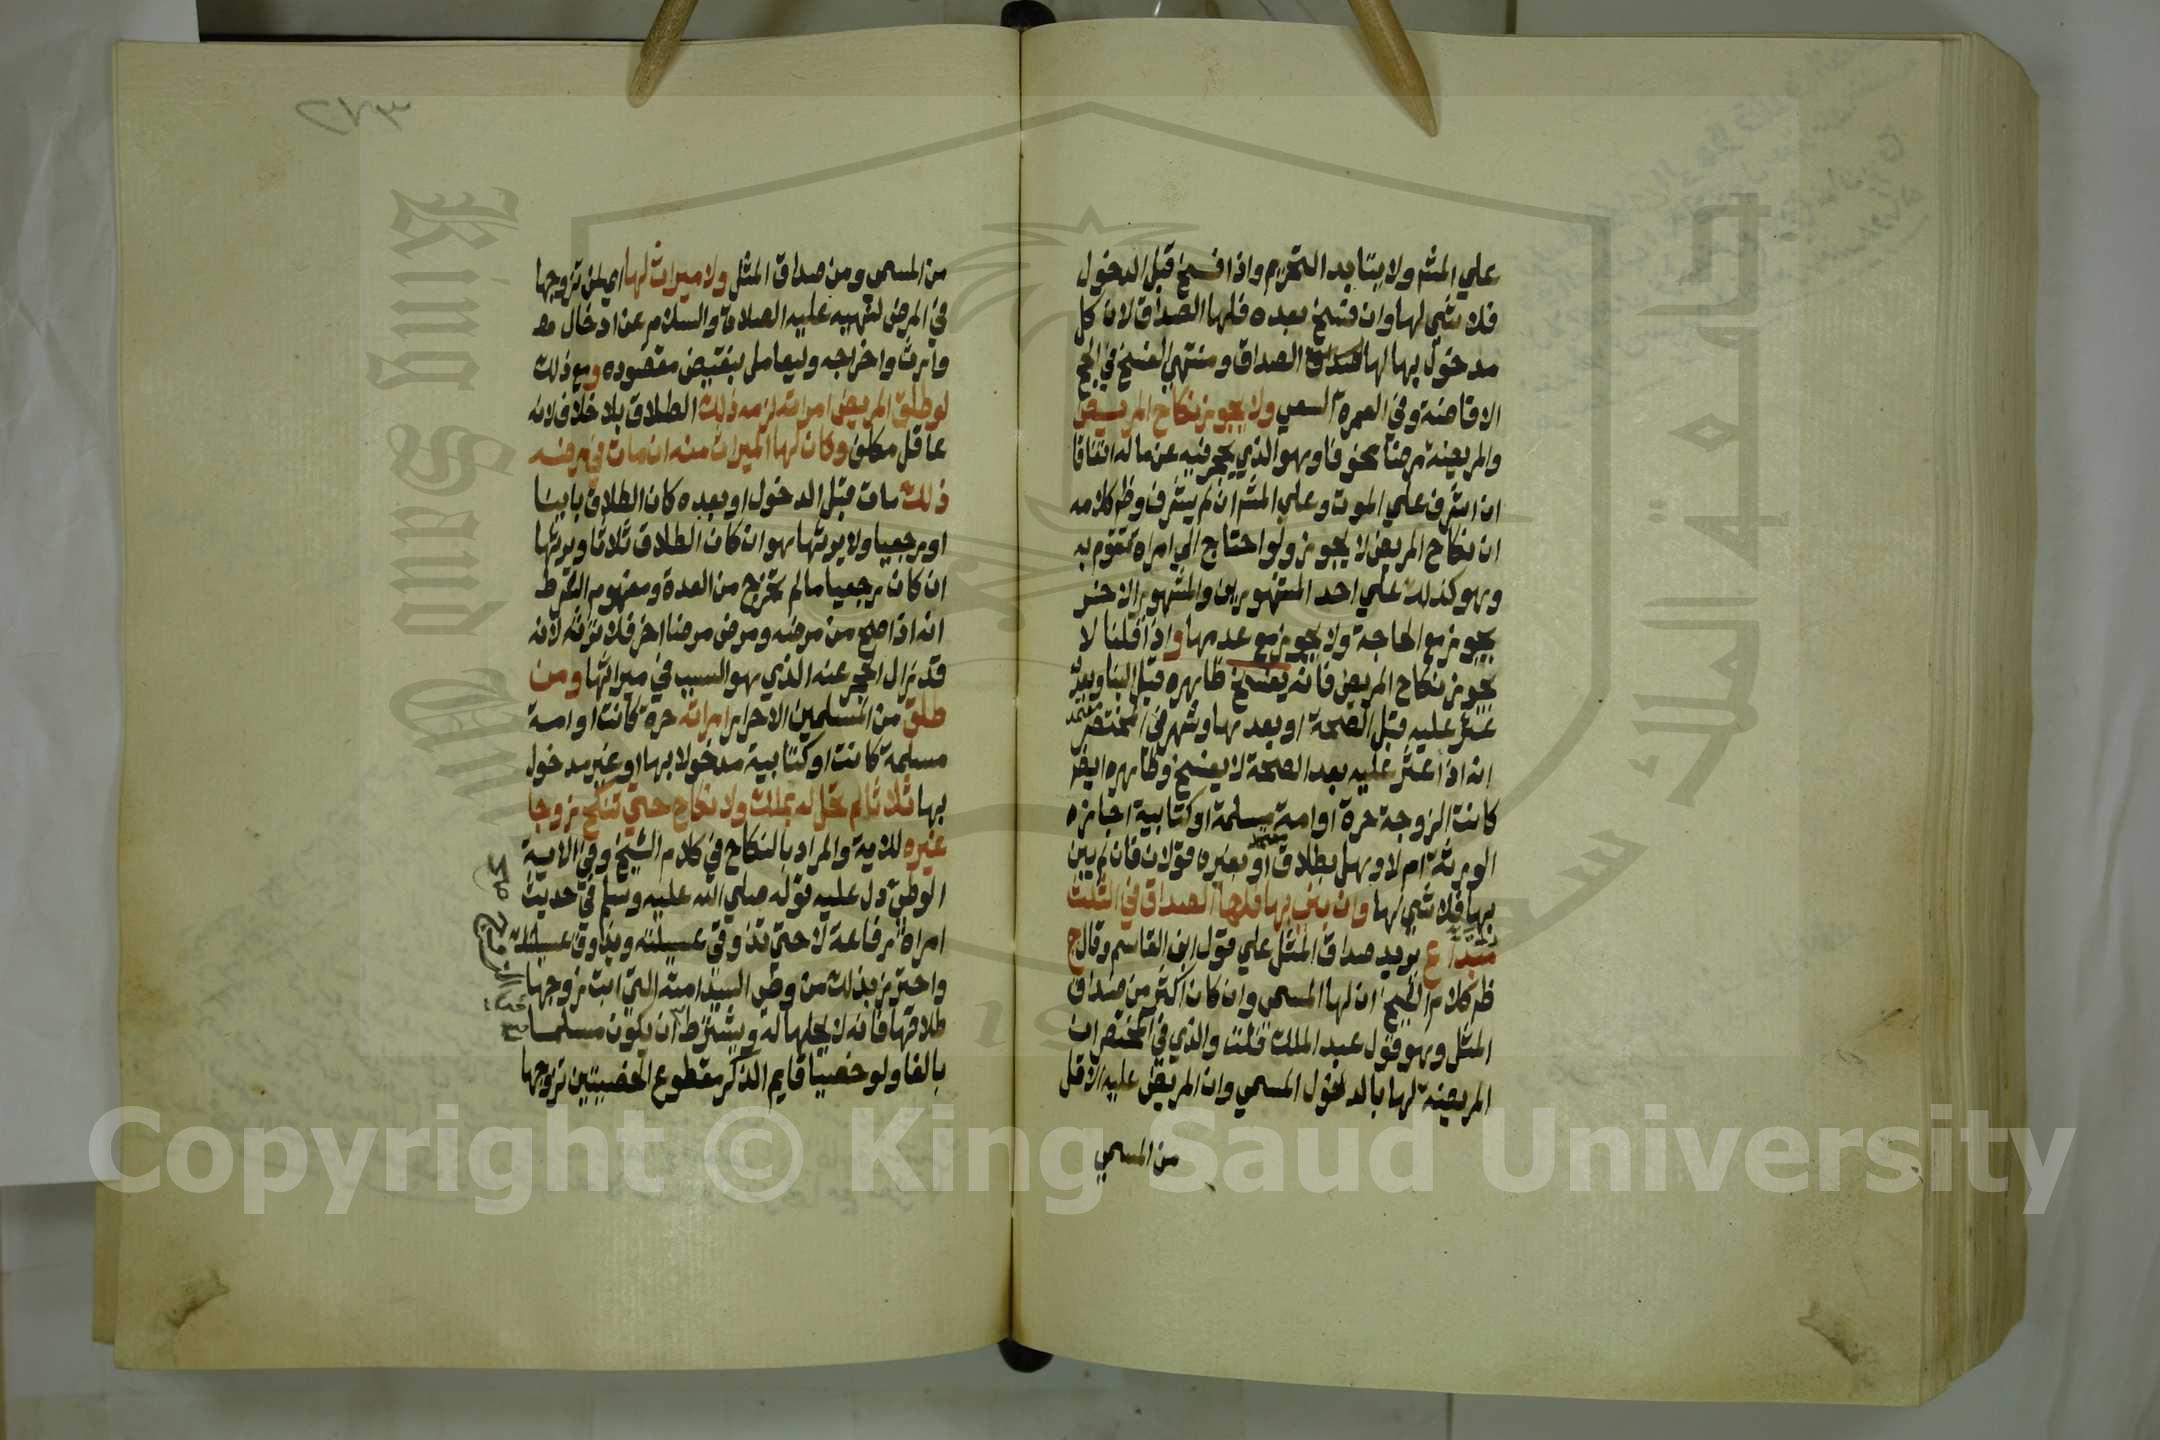 علي المشه ولا يتابد التحريم واذا فسخ قبل الدخول
فلا شي لها وان فسخ بعده فلها الصداق لان كل
مدخول بها لها الصداق ومنتهي الفسخ في الحج
الافاضة وفي العمرة السعي ولا يجوز نكاح المريض
والمريضة مرضا مخوفا وهو الذي يحجر فيه عن ماله اتفاقا
ان اشرف علي الموت وعلي المشه ان لم يشرف وظ كلامه
ان نكاح المريض لا يجوز ولو احتاج الي امراة تقوم به
وهو كذلك علي احد المشهورين والمشهور الاخر
يجوز مع الحاجة ولا يجوز مع عدمها واذا قلنا لا
يجوز نكاح المريض فانه يفسخ ظاهره قبل البنا وبعد
عثر عليه قبل الصحة او بعدها وشهر في المختصر
انه اذا عثر عليه بعد الصحة لا يفسخ وظاهره ايضا
كانت الزوجة حرة او امة مسلمة او كتابية اجازه
الورثة ام لا وهل بطلاق او بغيره قولان فان لم يبن
بها فلا شي لها وان بني بها فلها الصداق في الثلث
مبتدا ع يريد صداق المثل علي قول ابن القاسم وقال ج
ظ كلام الشيخ ان لها المسمي وان كان اكثر من صداق
المثل وهو قول عبد الملك قلت والذي في المختصر ان
المريضة لها بالدخول المسمي وان المريض عليه الاقل
من المسمي
من المسمي ومن صداق المثل ولا ميراث لها اي لمن تزوجها
في المرض لنهيه عليه الصلاة والسلام عن ادخال
وارث واخراجه وليعامل بنقيض مقصوده ومع ذلك
لو طلق المريض امراته لزمه ذلك الطلاق بلا خلاف لانه
عاقل مكلف وكان لها الميراث منه ان مات في مرضه
ذلك مات قبل الدخول او بعده كان الطلاق باينا
او رجعيا ولا يرثها هو ان كان الطلاق ثلاثا ويرثها
ان كان رجعيا ما لم تخرج من العدة ومفهوم الشرط
انه اذا صح من مرضه ومرض مرضا اخر فلا ترثه لانه
قد زال الحجر عنه الذي هو السبب في ميراثها ومن
طلق من المسلمين الاحرار امراته حرة كانت او امة
مسلمة كانت او كتابية مدخولا بها او غير مدخول
بها ثلاثا لم تحل له بملك ولا نكاح حتي تنكح زوجا
غيره للاية والمراد بالنكاح في كلام الشيخ وفي الاية
الوطئ دل عليه قوله صلي الله عليه وسلم في حديث
امراة رفاعة لا حتي تذوقي عسيلته ويذوق عسيلتك
واحترز بذلك من وطي السيد امته التي ابت زوجها
طلاقها فانه لا يحلها له ويشترط ان يكون مسلما
بالغا ولو خصيا قايم الذكر مقطوع الخصيتين تزوجها
King Saud University
جامعة الملك سعود
Copyright © King Saud University